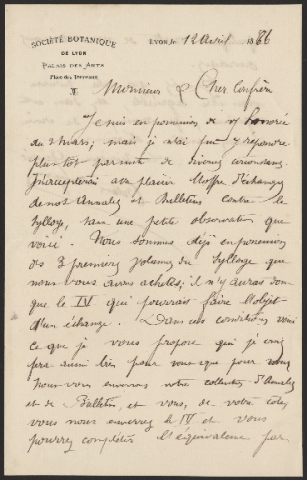 SOCIÉTÉ BOTANIQUE
DE LYON
PALAIS DES ARTS
Place des Terreaux
LYON, le 12 Avril 1886
Monsieur & Cher Confrère
Je suis en possession de v/ honorée
du 2 mars; mais je n'ai pu y répondre
plus tôt par suite de diverses circonstances.
J'accepterai avec plaisir l'offre d'échange
de nos Annales et Bulletins contre le
Sylloge, sauf une petite observation que
voici. Nous sommes déjà en possession
des 3 premiers volumes du Sylloge que
nous vous avons achetés, il n'y aurait donc
que le IV qui pourrait faire l'objet
d'un échange. Dans ces conditions voici
ce que je vous propose qui je crois
fera aussi bien pour vous que pour nous
nous vous enverrons notre collection d'Annales
et de Bulletins, et vous, de votre côté,
vous nous enverrez le IV et vous
pourrez compléter l'équivalence par